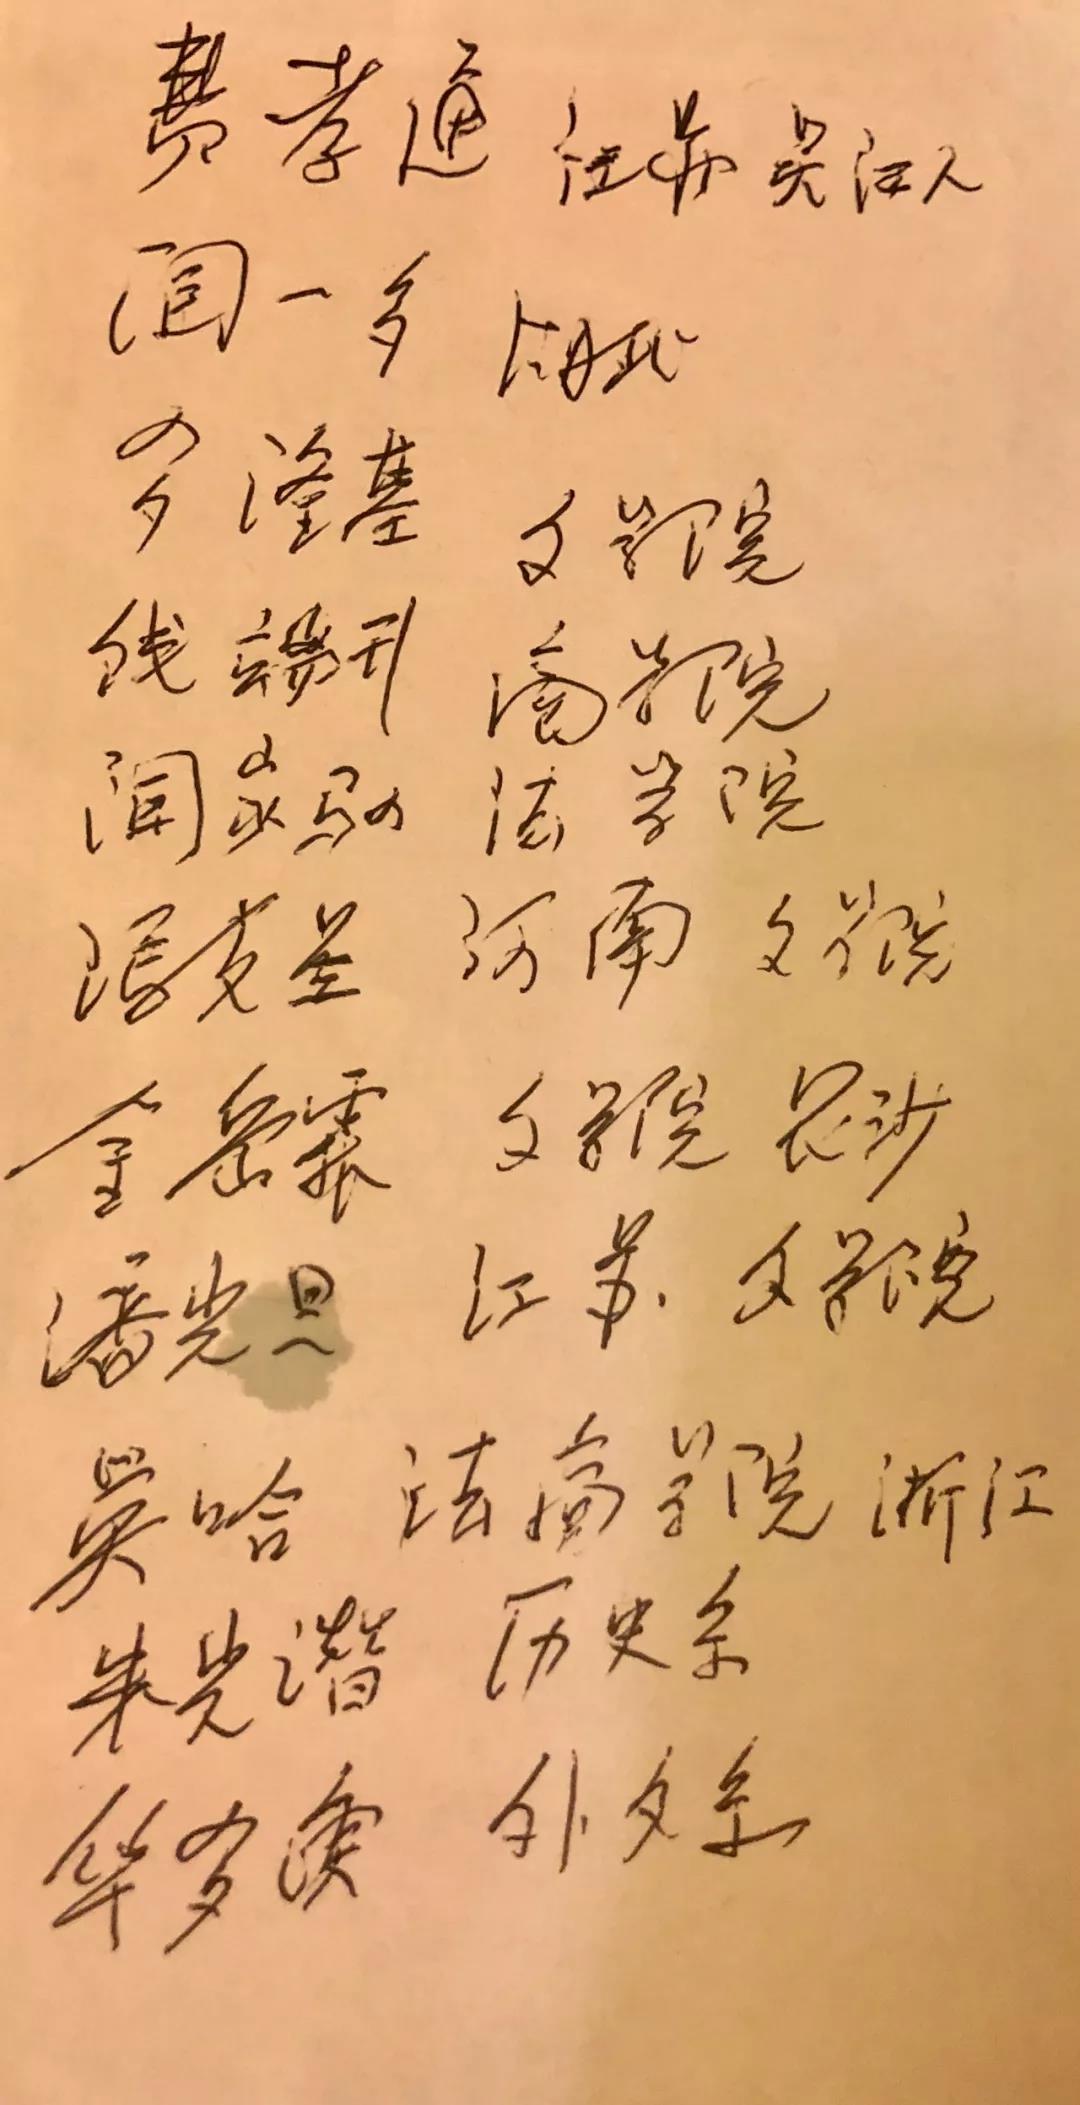 费孝通 江苏吴江人
闻一多 湖北
罗隆基 文学院
钱端升 商学院
闻家驷 法学院
冯友兰 河南 文学院
金岳霖 文学院 长沙
潘光旦 江苏 文学院
吴晗 法商学院 浙江
朱光潜 历史系
华罗庚 外文系